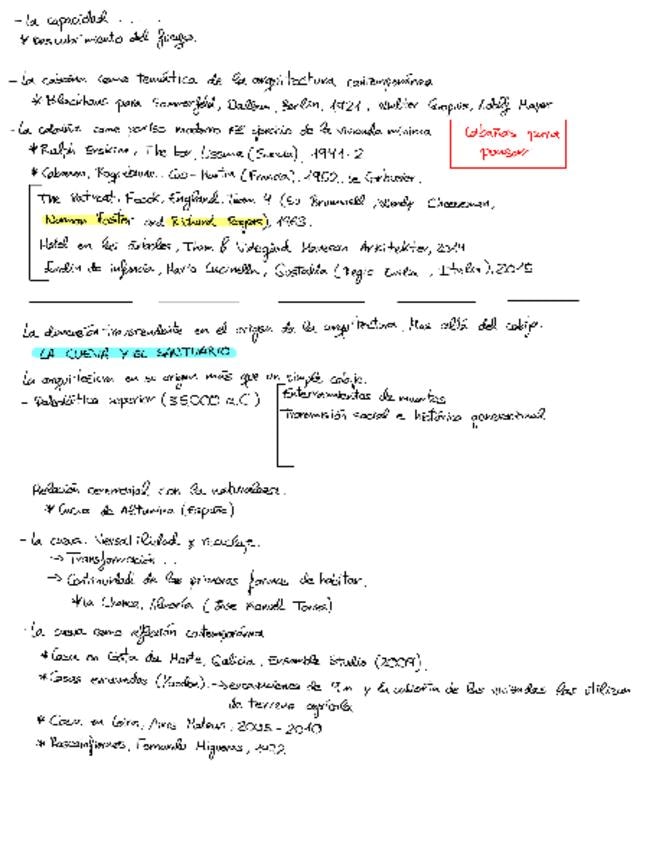 - La capacidad . . .
* Descubrimiento del fuego.
- La cabaña como temática de la arquitectura contemporánea
* Blockhaus para Sommerfeld, Berlin, 1921, Walter Gropius, Adolf Meyer
- La cabaña como moderno de la vivienda mínima
Cabañas para pensar
* Ralph Erskine, The box, Lissma (Suecia), 1941-2
* Cabanon, (Francia), 1952, Le Corbusier.
The Retreat, England. Team 4 (Su Brumwell, Wendy Cheeseman,
Norman Foster and Richard Rogers), 1963.
Hotel en los árboles, Tham & Videgård Arkitekter, 2014
Jardín de infancia, Mario Cucinella, Guastalla (Regio Emilia, Italia), 2015
La dimensión trascendente en el origen de la arquitectura. Mas allá del cobijo.
LA CUEVA Y EL SANTUARIO
La arquitectura en su origen más que un simple cobijo.
- Paleolítico superior (35,000 a.C)
Enterramientos de muertos
Transmisión social e histórica generacional
Relación ceremonial con la naturaleza.
* Cueva de Altamira (España)
- La cueva. Versatilidad y reciclaje.
-> Transformación . .
-> Continuidad de las primeras formas de habitar.
* La Chanca, Almería (Jose Manuel Torres)
- La cueva como reflexión contemporánea
* Casa en Costa da Morte, Galicia, Ensamble Studio (2009).
* Casas -> excavaciones de 9 m y la cubierta de las viviendas las utilizan
de terreno agrícola
* Casa en Leiria, Aires Mateus, 2005 - 2010
* Fernando Higueras, 1972